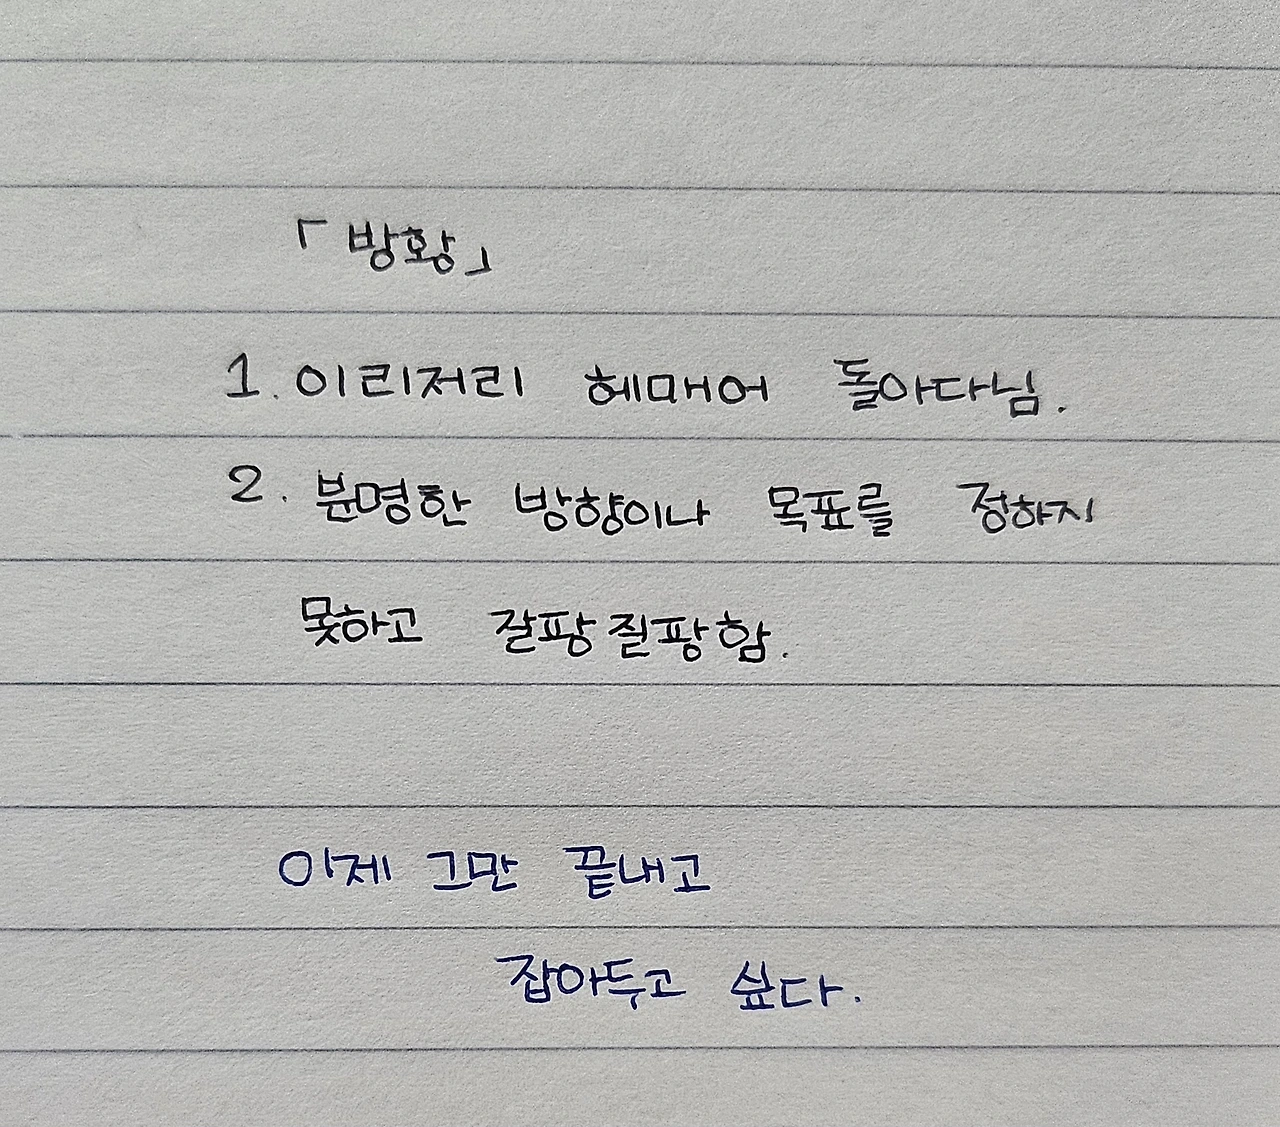 「방황」
1. 이리저리 헤매어 돌아다님.
2. 분명한 방향이나 목표를 정하지
못하고 갈팡질팡함.
이제 그만 끝내고
잡아두고 싶다.